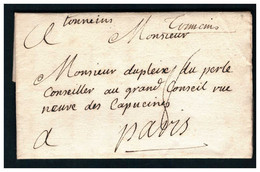 tonneins Tonneins
A Monsieur
Monsieur dupleix du perle
Conseiller au grand Conseil rue
neuve des Capucines
a paris